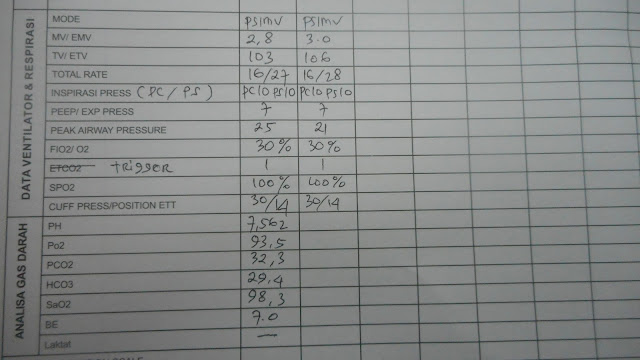 DATA VENTILATOR & RESPIRASI
MODE PSIMV PSIMV
MV/ EMV 2,8 3.0
TV/ ETV 103 106
TOTAL RATE 16/27 16/28
INSPIRASI PRESS (PC / PS) PC10 PS10 PC10 PS10
PEEP/ EXP PRESS 7 7
PEAK AIRWAY PRESSURE 25 21
FIO2/ O2 30% 30%
ETCO2 TRIGGER 1 1
SPO2 100% 100%
CUFF PRESS/POSITION ETT 30/14 30/14
ANALISA GAS DARAH
PH 7,562
Po2 93,5
PCO2 32,3
HCO3 29,4
SaO2 98,3
BE 7.0
Laktat —